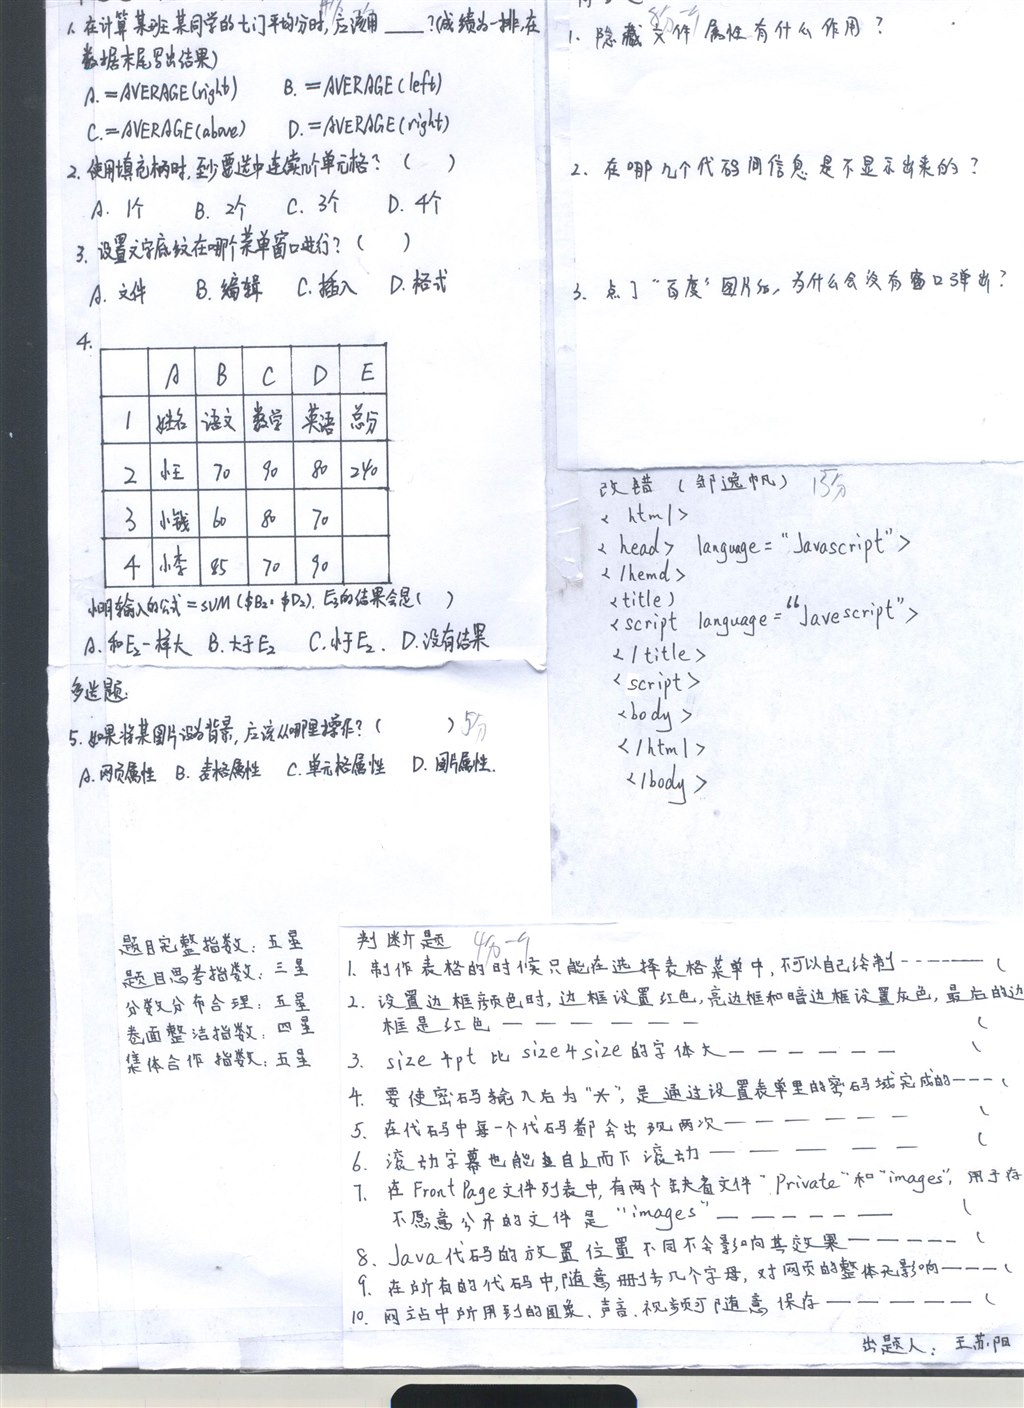 1. 在计算某班某同学的七门平均分时，应该用____？(成绩为一排，在
数据末尾写出结果)
A. =AVERAGE(right) B. =AVERAGE(left)
C. =AVERAGE(above) D. =AVERAGE(right)
2. 使用填充柄时，至少要选中连续几个单元格？（ ）
A. 1个 B. 2个 C. 3个 D. 4个
3. 设置文字底纹在哪个菜单窗口进行？（ ）
A. 文件 B. 编辑 C. 插入 D. 格式
4.
A B C D E
1 姓名 语文 数学 英语 总分
2 小王 70 90 80 240
3 小钱 60 80 70
4 小李 85 70 90
小明输入的公式=SUM($B2:$D2)，E3的结果会是（ ）
A. 和E2一样大 B. 大于E2 C. 小于E2. D. 没有结果
多选题:
5. 如果将某图片设为背景，应该从哪里操作？（ ）5分
A. 网页属性 B. 表格属性 C. 单元格属性 D. 图片属性.
1. 隐藏文件属性有什么作用？
2. 在哪几个代码间信息是不显示出来的？
3. 点了“百度”图片后，为什么会没有窗口弹出？
改错（邹逸帆）15分
< html>
< head> language="Javascript">
</hemd>
<title)
<script language=“Javescript”>
</title>
<script>
<body>
</html>
</body>
题目完整指数：五星
题目思考指数：三星
分数分布合理：五星
卷面整洁指数：四星
集体合作指数：五星
判断题 4分一个
1. 制作表格的时候只能在选择表格菜单中，不可以自己绘制-------（
2. 设置边框颜色时，边框设置红色，亮边框和暗边框设置灰色，最后的边
框是红色 — — — — — —（
3. size 4pt 比 size 4 size 的字体大 — — — — — —（
4. 要使密码输入后为“*”，是通过设置表单里的密码域完成的---（
5. 在代码中每一个代码都会出现两次 — — — — —（
6. 滚动字幕也能自上而下滚动 — — — — —（
7. 在FrontPage文件列表中，有两个缺省文件“Private”和“images”，用于存
不愿意公开的文件是“images” — — — — — —（
8. Java代码的放置位置不同不会影响其效果 — — — — —（
9. 在所有的代码中，随意删去几个字母，对网页的整体无影响 ----（
10. 网站中所用到的图象、声音、视频可随意保存 — — — — — —（
出题人：王苏阳